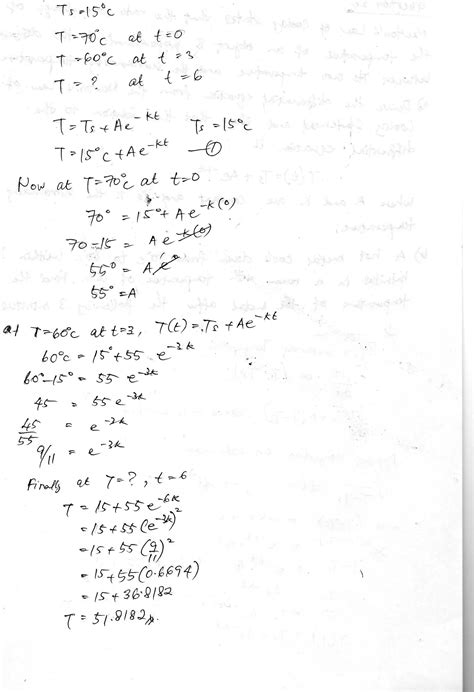 Ts = 15°C
T = 70°C at t = 0
T = 60°C at t = 3
T = ? at t = 6
T = Ts + Ae^-kt Ts = 15°C
T = 15°C + Ae^-kt ①
Now at T = 70°C at t = 0
70° = 15° + Ae^-k(0)
70 - 15 = Ae^-k(0)
55° = Ae°
55° = A
at T = 60°C at t = 3, T(t) = Ts + Ae^-kt
60°C = 15° + 55 e^-3k
60° - 15° = 55 e^-3k
45 = 55 e^-3k
45/55 = e^-3k
9/11 = e^-3k
Finally at T = ?, t = 6
T = 15 + 55 e^-6k
= 15 + 55 (e^-3k)^2
= 15 + 55 (9/11)^2
= 15 + 55 (0.6694)
= 15 + 36.8182
T = 51.8182